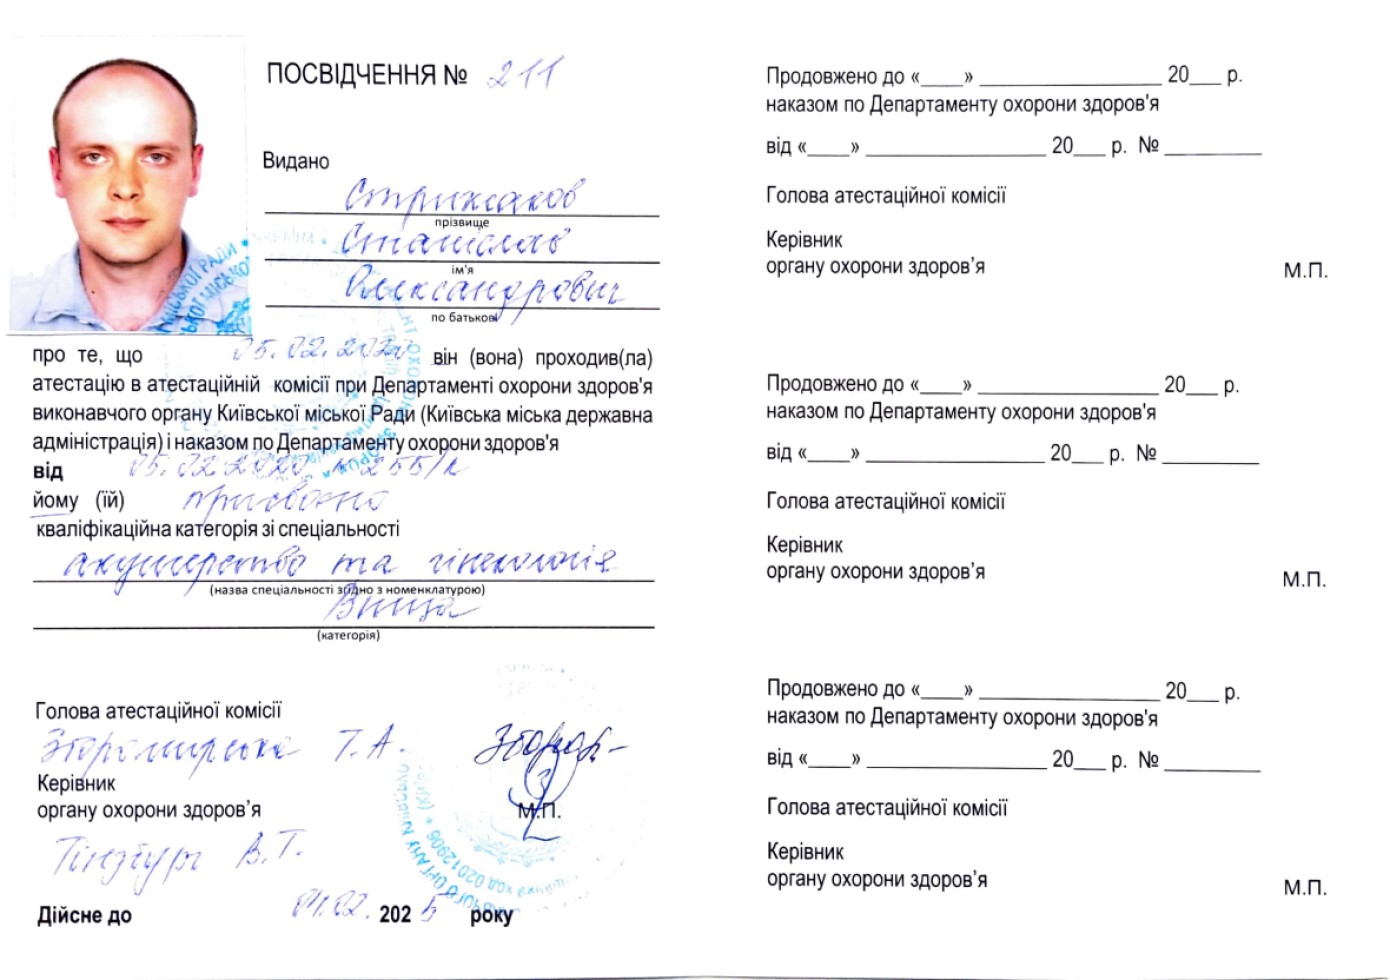 ПОСВІДЧЕННЯ № 211
Видано
Стрижаков
прізвище
Станіслав
ім'я
Олександрович
по батькові
про те, що 05.02.2020 він (вона) проходив(ла)
атестацію в атестаційній комісії при Департаменті охорони здоров'я
виконавчого органу Київської міської Ради (Київська міська державна
адміністрація) і наказом по Департаменту охорони здоров'я
від 05.02.2020 № 255/к
йому (їй) присвоєно
кваліфікаційна категорія зі спеціальності
акушерство та гінекологія
(назва спеціальності згідно з номенклатурою)
Вища
(категорія)
Голова атестаційної комісії
Т.А.
Керівник
органу охорони здоров’я
М.П.
Гінзбург В.Г.
Дійсне до 04.02. 2025 року
Продовжено до «____» ________________ 20___ р.
наказом по Департаменту охорони здоров'я
від «____» ________________ 20___ р. № _________
Голова атестаційної комісії
Керівник
органу охорони здоров’я М.П.
Продовжено до «____» ________________ 20___ р.
наказом по Департаменту охорони здоров'я
від «____» ________________ 20___ р. № _________
Голова атестаційної комісії
Керівник
органу охорони здоров’я М.П.
Продовжено до «____» ________________ 20___ р.
наказом по Департаменту охорони здоров'я
від «____» ________________ 20___ р. № _________
Голова атестаційної комісії
Керівник
органу охорони здоров’я М.П.